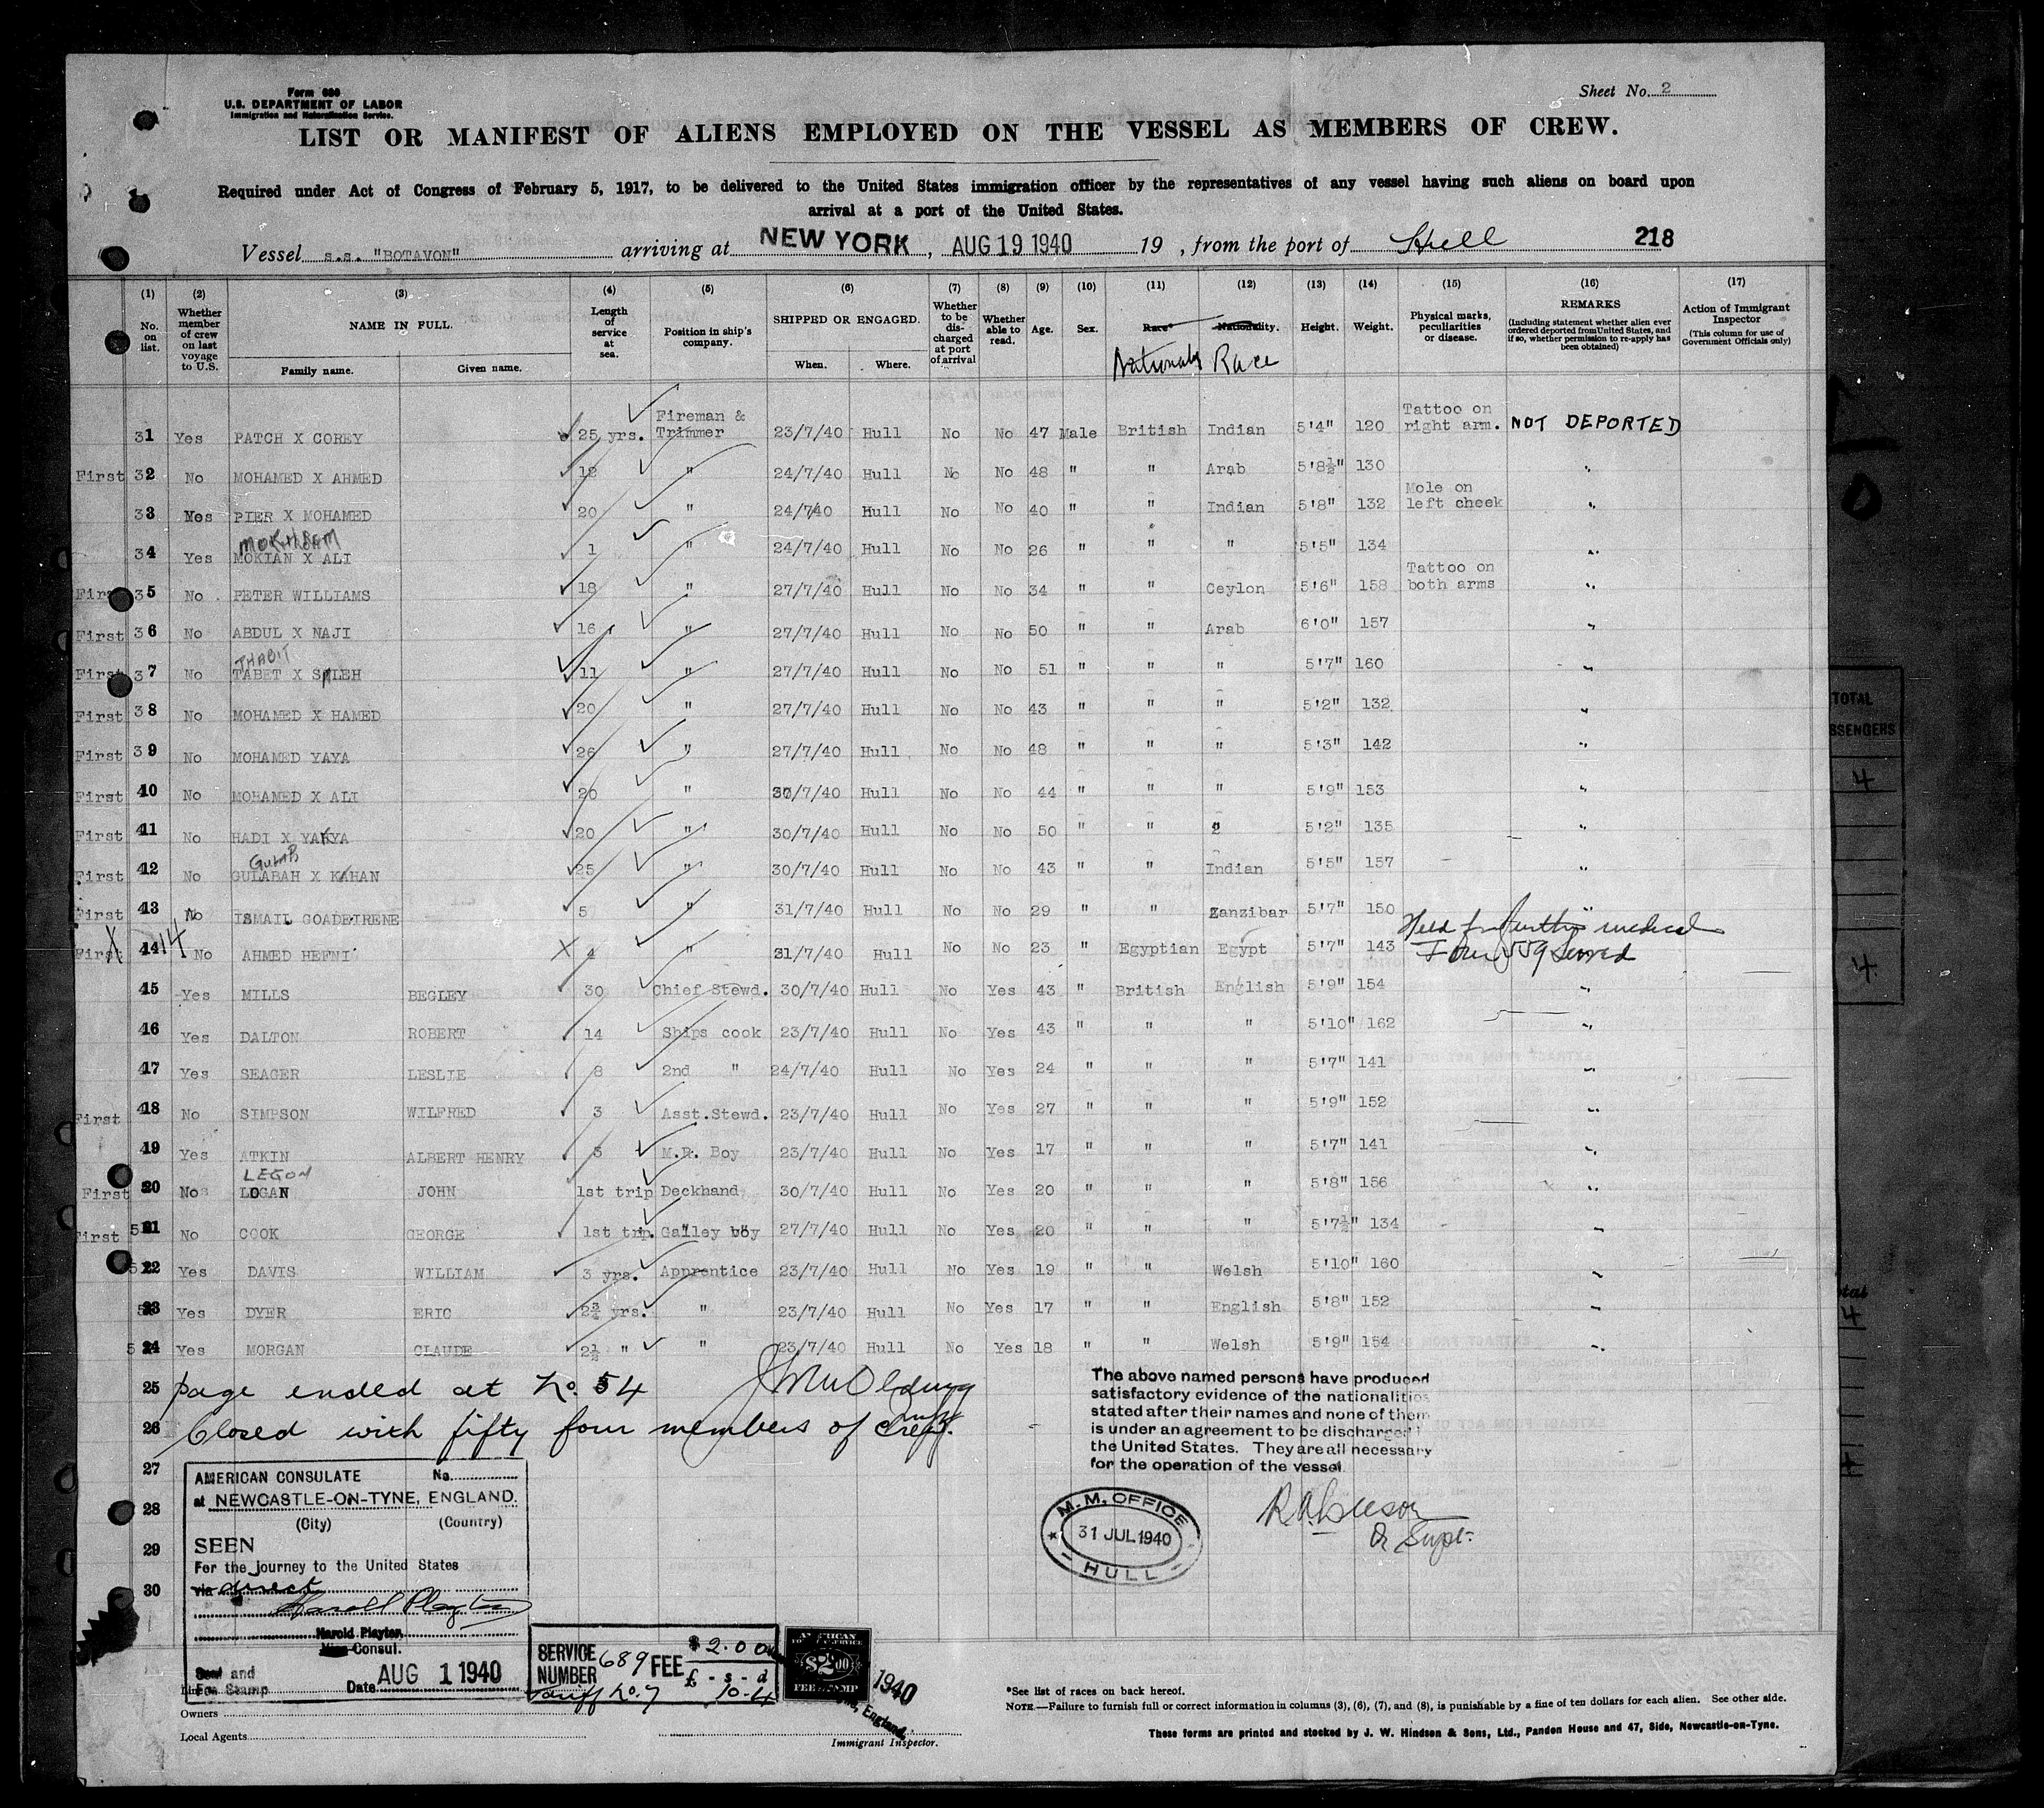 Form 680
U.S. DEPARTMENT OF LABOR
Immigration and Naturalization Service.
Sheet No. 2
LIST OR MANIFEST OF ALIENS EMPLOYED ON THE VESSEL AS MEMBERS OF CREW.
Required under Act of Congress of February 5, 1917, to be delivered to the United States immigration officer by the representatives of any vessel having such aliens on board upon
arrival at a port of the United States.
Vessel s.s. "BOTAVON" arriving at NEW YORK, AUG 19 1940 19 , from the port of Hull 218
(1) (2) (3) (4) (5) (6) (7) (8) (9) (10) (11) (12) (13) (14) (15) (16) (17)
No. on list. Whether member of crew on last voyage to U.S. NAME IN FULL. Family name. Given name. Length of service at sea. Position in ship's company. SHIPPED OR ENGAGED. When. Where. Whether to be discharged at port of arrival Whether able to read. Age. Sex. Race* Nationality. Height. Weight. Physical marks, peculiarities or disease. REMARKS (Including statement whether alien ever ordered deported from United States, and if so, whether permission to re-apply has been obtained) Action of Immigrant Inspector (This column for use of Government Officials only)
Nationality Race
31 Yes PATCH X COREY 25 yrs. Fireman & Trimmer 23/7/40 Hull No No 47 Male British Indian 5'4" 120 Tattoo on right arm. NOT DEPORTED
First 32 No MOHAMED X AHMED 18 " 24/7/40 Hull No No 48 " " Arab 5'8½" 130 "
33 Yes PIER X MOHAMED 20 " 24/7/40 Hull No No 40 " " Indian 5'8" 132 Mole on left cheek "
MOKHSAM
34 Yes MOKIAN X ALI 1 " 24/7/40 Hull No No 26 " " " 5'5" 134 "
First 35 No PETER WILLIAMS 18 " 27/7/40 Hull No No 34 " " Ceylon 5'6" 158 Tattoo on both arms "
First 36 No ABDUL X NAJI 16 " 27/7/40 Hull No No 50 " " Arab 6'0" 157 "
THABIT
First 37 No TABET X SALEH 11 " 27/7/40 Hull No No 51 " " " 5'7" 160 "
First 38 No MOHAMED X HAMED 20 " 27/7/40 Hull No No 43 " " " 5'2" 132 "
First 39 No MOHAMED YAYA 26 " 27/7/40 Hull No No 48 " " " 5'3" 142 "
First 40 No MOHAMED X ALI 20 " 30/7/40 Hull No No 44 " " " 5'9" 153 "
First 41 No HADI X YAKYA 20 " 30/7/40 Hull No No 50 " " " 5'2" 135 "
GULAB
First 42 No GULABAH X KAHAN 25 " 30/7/40 Hull No No 43 " " Indian 5'5" 157 "
First 43 No ISMAIL GOADEIRENE 5 " 31/7/40 Hull No No 29 " " Zanzibar 5'7" 150 "
Held for further medical
X First 44 14 No AHMED HEFNI X 4 " 31/7/40 Hull No No 23 " Egyptian Egypt 5'7" 143 Form 559 Served
45 Yes MILLS BEGLEY 30 Chief Stewd. 30/7/40 Hull No Yes 43 " British English 5'9" 154 "
46 Yes DALTON ROBERT 14 Ships cook 23/7/40 Hull No Yes 43 " " " 5'10" 162 "
47 Yes SEAGER LESLIE 8 2nd " 24/7/40 Hull No Yes 24 " " " 5'7" 141 "
First 48 No SIMPSON WILFRED 3 Asst.Stewd. 23/7/40 Hull No Yes 27 " " " 5'9" 152 "
49 Yes ATKIN ALBERT HENRY 3 M.R. Boy 23/7/40 Hull No Yes 17 " " " 5'7" 141 "
LEGON
First 50 No LOGAN JOHN 1st trip Deckhand 30/7/40 Hull No Yes 20 " " " 5'8" 156 "
First 51 No COOK GEORGE 1st trip. Galley boy 27/7/40 Hull No Yes 20 " " " 5'7½" 134 "
52 Yes DAVIS WILLIAM 3 yrs. Apprentice 23/7/40 Hull No Yes 19 " " Welsh 5'10" 160 "
53 Yes DYER ERIC 2¾ yrs. " 23/7/40 Hull No Yes 17 " " English 5'8" 152 "
54 Yes MORGAN CLAUDE 2½ " " 23/7/40 Hull No Yes 18 " " Welsh 5'9" 154 "
25 page ended at No. 54
26 Closed with fifty four members of crew.
27
28
29
30
The above named persons have produced
satisfactory evidence of the nationalities
stated after their names and none of them
is under an agreement to be discharged in
the United States. They are all necessary
for the operation of the vessel.
Supt.
M.M. OFFICE
31 JUL 1940
HULL
AMERICAN CONSULATE No.
at NEWCASTLE-ON-TYNE, ENGLAND.
(City) (Country)
SEEN
For the journey to the United States
via direct
Harold Playter
Harold Playter.
Vice Consul.
Seal and
Fee Stamp Date AUG 1 1940
SERVICE NUMBER 689 FEE $2.00
£ - s - d
Tariff No. 7 10-4
AMERICAN
$2.00
FEE STAMP
1940
England.
Owners
Local Agents
Immigrant Inspector.
*See list of races on back hereof.
NOTE.—Failure to furnish full or correct information in columns (3), (6), (7), and (8), is punishable by a fine of ten dollars for each alien. See other side.
These forms are printed and stocked by J. W. Hindson & Sons, Ltd., Pandon House and 47, Side, Newcastle-on-Tyne.
TOTAL
4
4
4